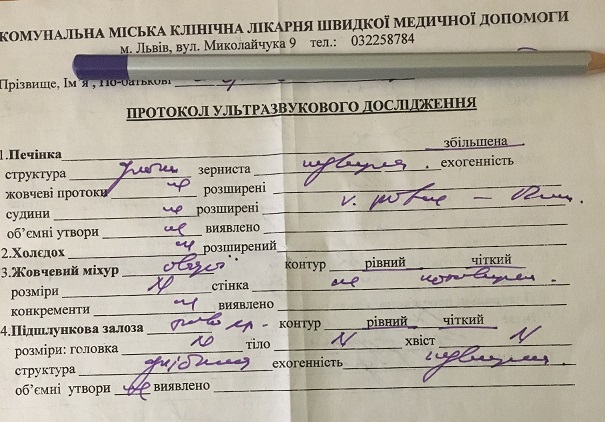 КОМУНАЛЬНА МІСЬКА КЛІНІЧНА ЛІКАРНЯ ШВИДКОЇ МЕДИЧНОЇ ДОПОМОГИ
м. Львів, вул. Миколайчука 9 тел.: 032258784
Прізвище, Ім'я, По-батькові
ПРОТОКОЛ УЛЬТРАЗВУКОВОГО ДОСЛІДЖЕННЯ
1.Печінка збільшена
структура зерниста підвищена . ехогенність
жовчеві протоки не розширені
судини не розширені v. portae –
об'ємні утвори не виявлено
2.Холєдох не розширений
3.Жовчевий міхур контур рівний чіткий
розміри N стінка не потовщена
конкременти не виявлено
4.Підшлункова залоза контур рівний чіткий
розміри: головка N тіло N хвіст N
структура ехогенність підвищена
об'ємні утвори не виявлено